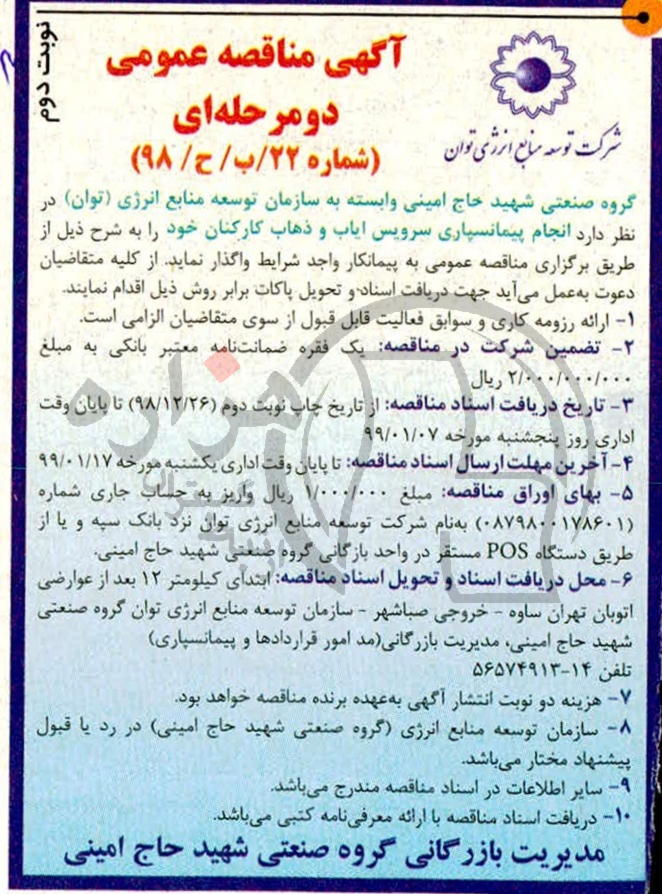 نوبت دوم
آگهی مناقصه عمومی
دومرحله‌ای
(شماره ۲۲/ب/ ح/ ۹۸)
شرکت توسعه منابع انرژی توان
گروه صنعتی شهید حاج امینی وابسته به سازمان توسعه منابع انرژی (توان) در
نظر دارد انجام پیمانسپاری سرویس ایاب و ذهاب کارکنان خود را به شرح ذیل از
طریق برگزاری مناقصه عمومی به پیمانکار واجد شرایط واگذار نماید. از کلیه متقاضیان
دعوت به‌عمل می‌آید جهت دریافت اسناد و تحویل پاکات برابر روش ذیل اقدام نمایند.
۱- ارائه رزومه کاری و سوابق فعالیت قابل قبول از سوی متقاضیان الزامی است.
۲- تضمین شرکت در مناقصه: یک فقره ضمانت‌نامه معتبر بانکی به مبلغ
۲/۰۰۰/۰۰۰/۰۰۰ ریال
۳- تاریخ دریافت اسناد مناقصه: از تاریخ چاپ نوبت دوم (۹۸/۱۲/۲۶) تا پایان وقت
اداری روز پنجشنبه مورخه ۹۹/۰۱/۰۷
۴- آخرین مهلت ارسال اسناد مناقصه: تا پایان وقت اداری یکشنبه مورخه ۹۹/۰۱/۱۷
۵- بهای اوراق مناقصه: مبلغ ۱/۰۰۰/۰۰۰ ریال واریز به حساب جاری شماره
(۰۸۷۹۸۰۰۱۷۸۶۰۱) به‌نام شرکت توسعه منابع انرژی توان نزد بانک سپه و یا از
طریق دستگاه POS مستقر در واحد بازرگانی گروه صنعتی شهید حاج امینی.
۶- محل دریافت اسناد و تحویل اسناد مناقصه: ابتدای کیلومتر ۱۲ بعد از عوارضی
اتوبان تهران ساوه - خروجی صباشهر - سازمان توسعه منابع انرژی توان گروه صنعتی
شهید حاج امینی، مدیریت بازرگانی(مد امور قراردادها و پیمانسپاری)
تلفن ۱۴-۵۶۵۷۴۹۱۳
۷- هزینه دو نوبت انتشار آگهی به‌عهده برنده مناقصه خواهد بود.
۸- سازمان توسعه منابع انرژی (گروه صنعتی شهید حاج امینی) در رد یا قبول
پیشنهاد مختار می‌باشد.
۹- سایر اطلاعات در اسناد مناقصه مندرج می‌باشد.
۱۰- دریافت اسناد مناقصه با ارائه معرفی‌نامه کتبی می‌باشد.
مدیریت بازرگانی گروه صنعتی شهید حاج امینی
هزاره